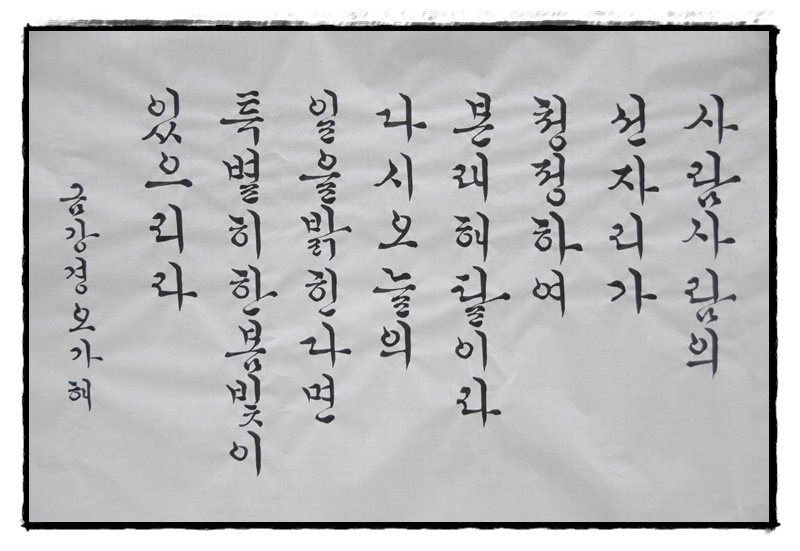 사람사람의
선자리가
청정하여
본래해탈이라
다시오늘의
일을밝힌다면
특별히한봄빛이
있으리라
금강경오가해